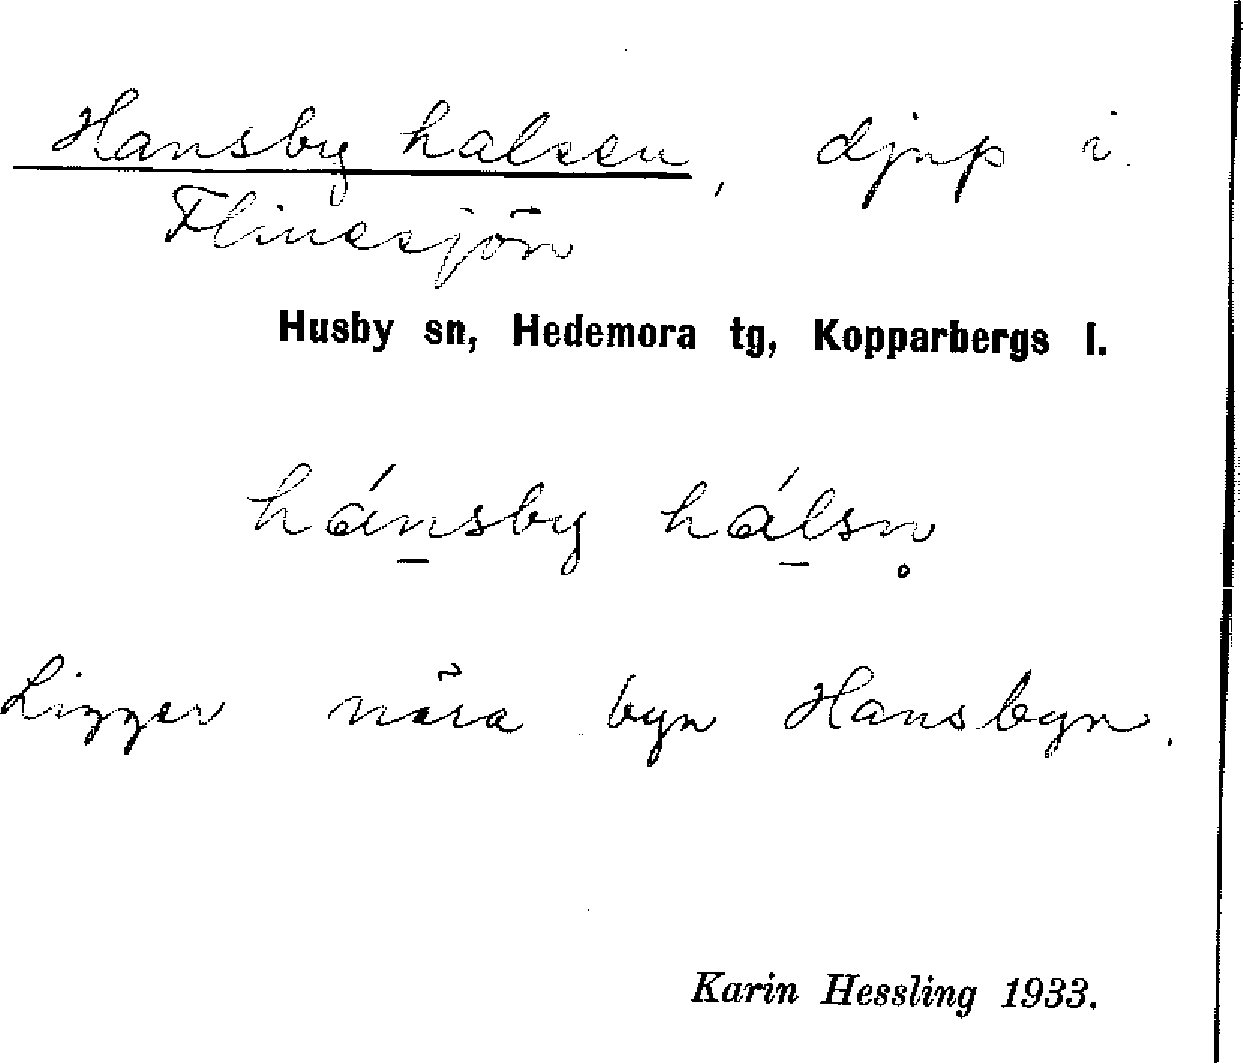 Hansby halsen, djup i
Flinesjön
Husby sn, Hedemora tg, Kopparbergs l.
hánsby hálsn̥
Ligger nära byn Hansbyn.
Karin Hessling 1933.